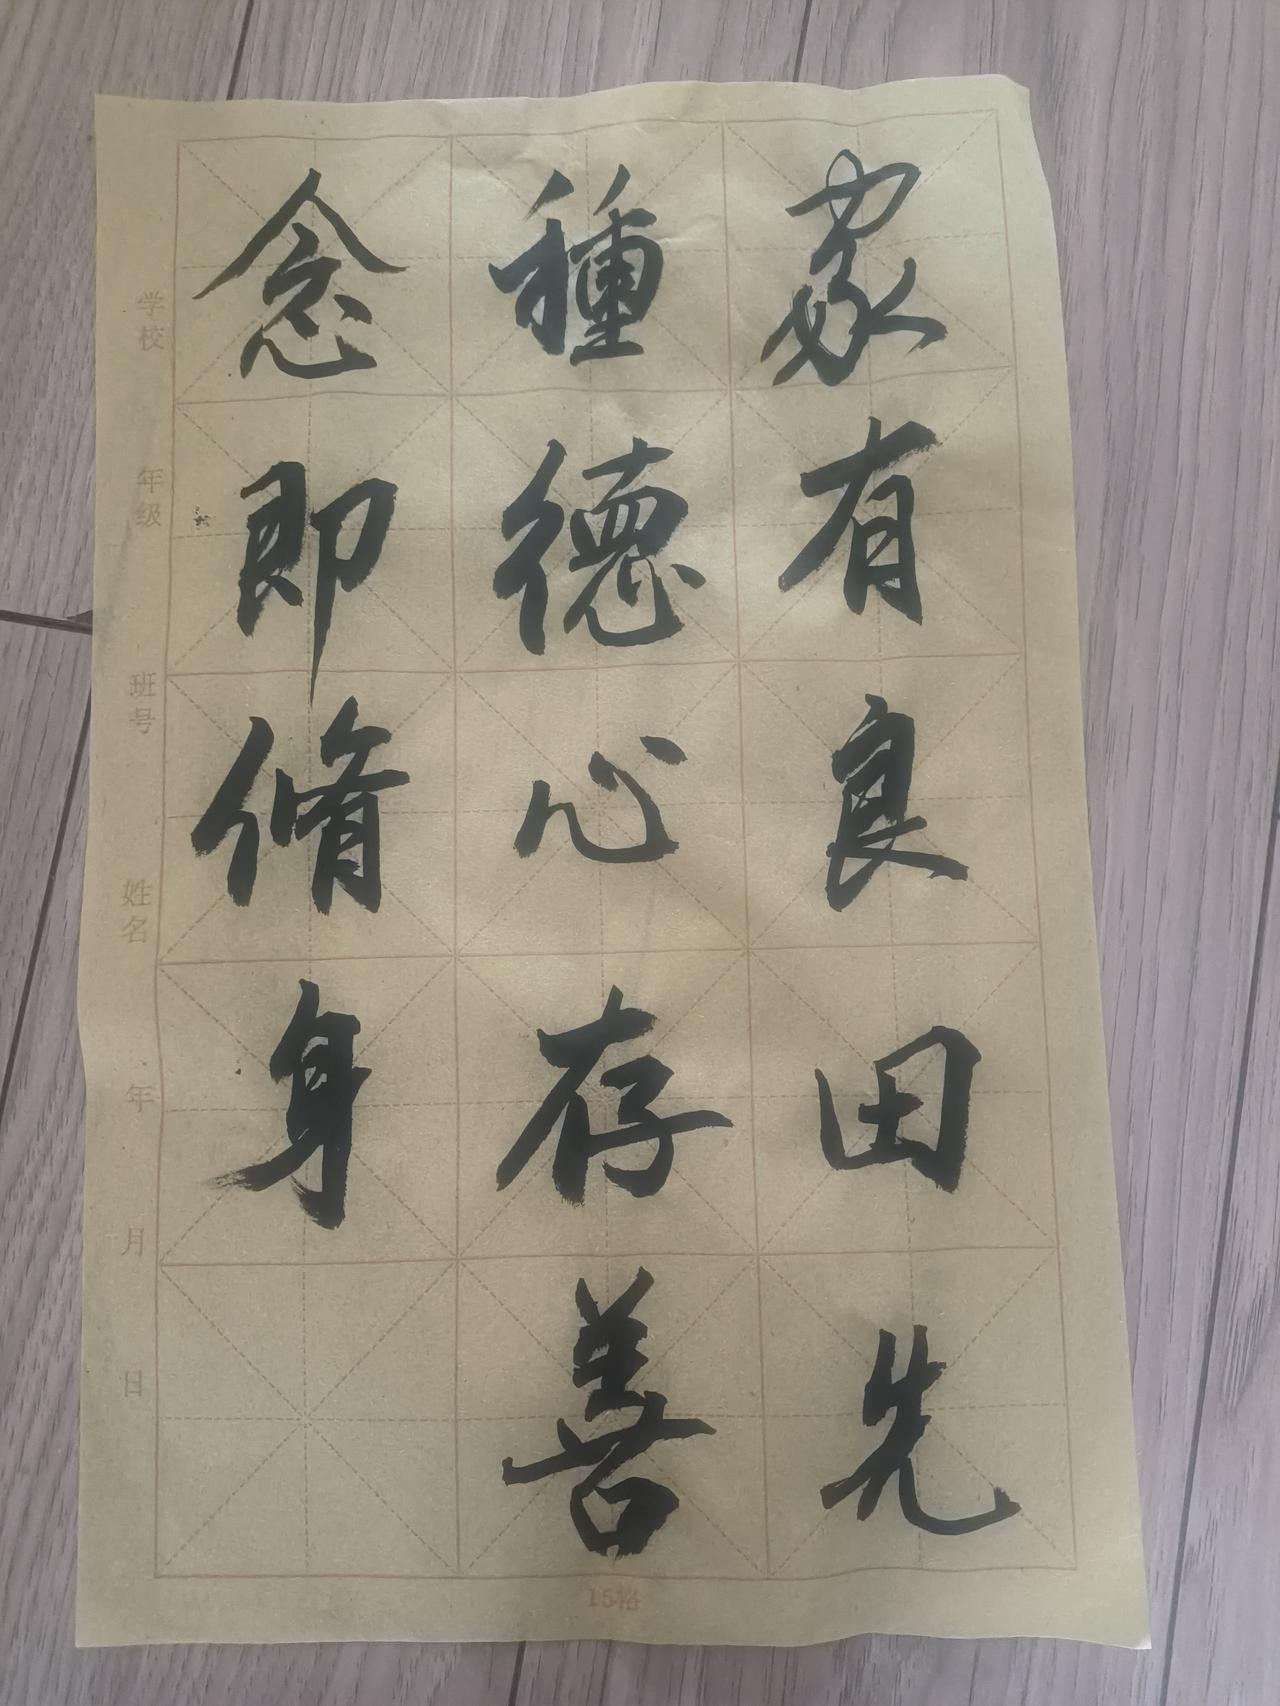 家有良田先
種德心存善
念即脩身
学校
年级
班号
姓名
年
月
日
15格